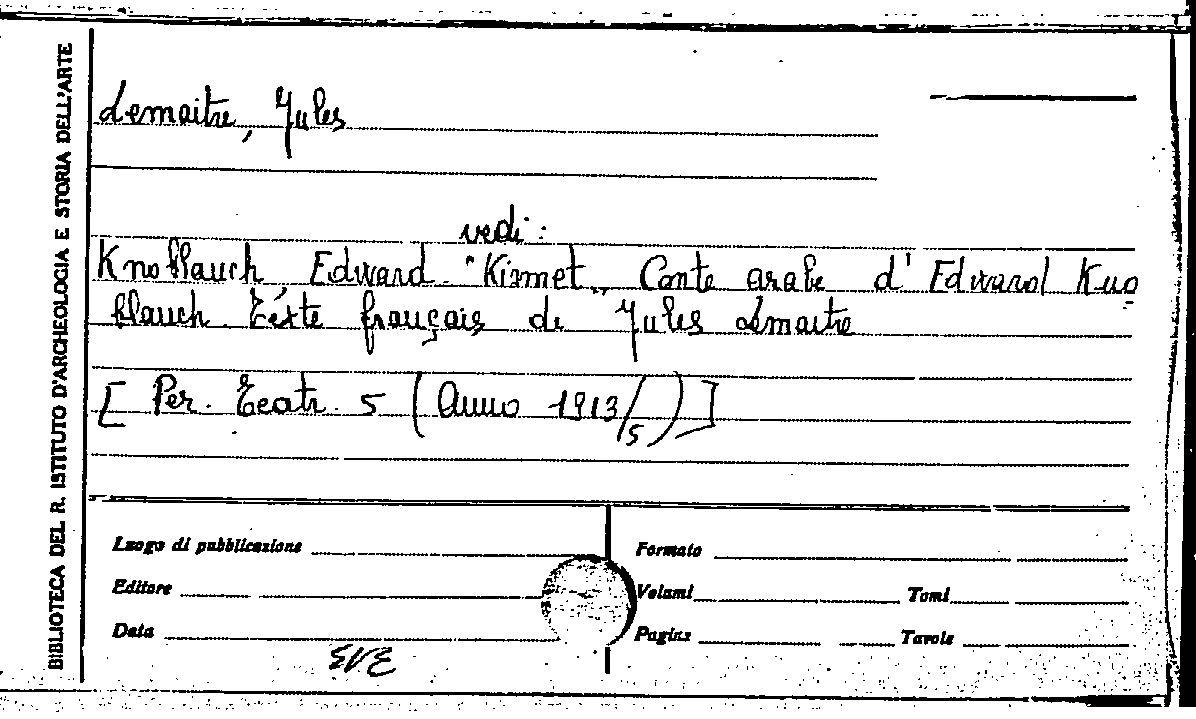 BIBLIOTECA DEL R. ISTITUTO D'ARCHEOLOGIA E STORIA DELL'ARTE
Lemaitre, Jules
vedi:
Knoblauch, Edward. "Kismet„ Conte arabe d'Edward Kno
blauch. Texte français de Jules Lemaitre
[Per. Teatr. 5 (Anno 1913/5)]
Luogo di pubblicazione Formato
Editore Volumi Tomi
Data Pagine Tavole